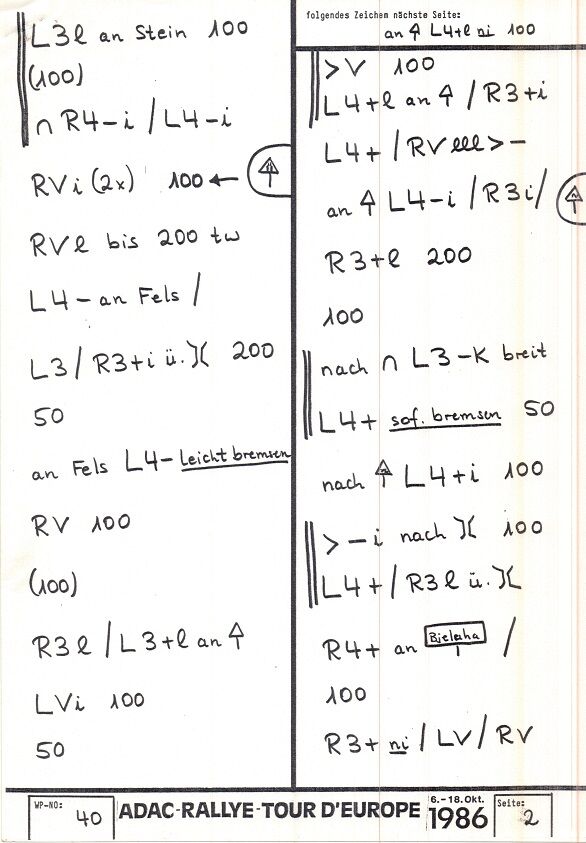 L3l an Stein 100
(100)
∩ R4-i / L4-i
RVi (2x) 100 ←
RVl bis 200 tw
L4- an Fels /
L3 / R3+i ü. )( 200
50
an Fels L4- Leicht bremsen
RV 100
(100)
R3l / L3+l an ↑
LVi 100
50
folgendes Zeichen nächste Seite:
an ↑ L4+l ni 100
>V 100
L4+l an ↑ / R3+i
L4+ / RVlll>-
an ↑ L4-i / R3i /
R3+l 200
100
nach ∩ L3-K breit
L4+ sof. bremsen 50
nach ↑ L4+i 100
>-i nach )( 100
L4+ / R3l ü. )(
R4+ an Bjelaha /
100
R3+ ni / LV / RV
WP-NO: 40
ADAC-RALLYE-TOUR D'EUROPE
6.-18.Okt. 1986
Seite: 2